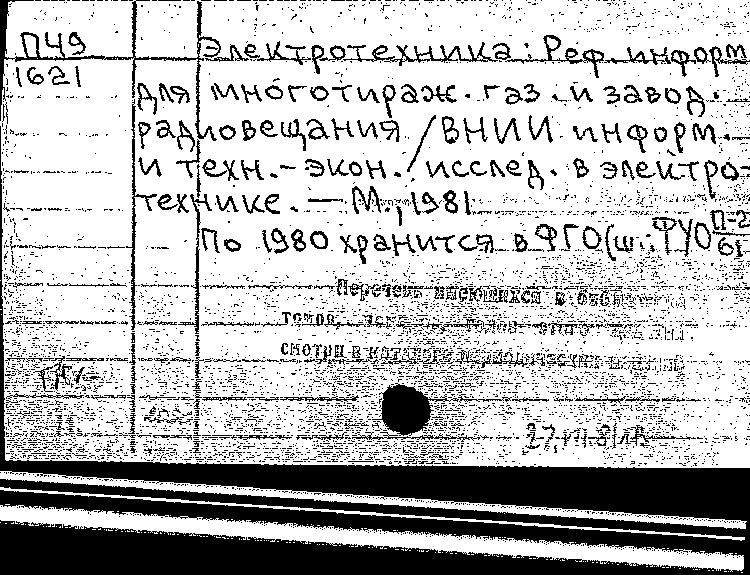 П49
1621
Электротехника: Реф. информ
для многотираж. газ. и завод.
радиовещания / ВНИИ информ.
и техн.-экон. исслед. в электро-
технике. — М., 1981
По 1980 хранится в ФГО (ш.: ФУО П-2
61
Перечень имеющихся в
томов,
смотри в каталоге
27.VII-81